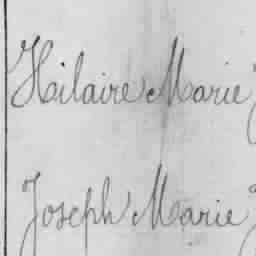 Hilaire Marie
Joseph Marie